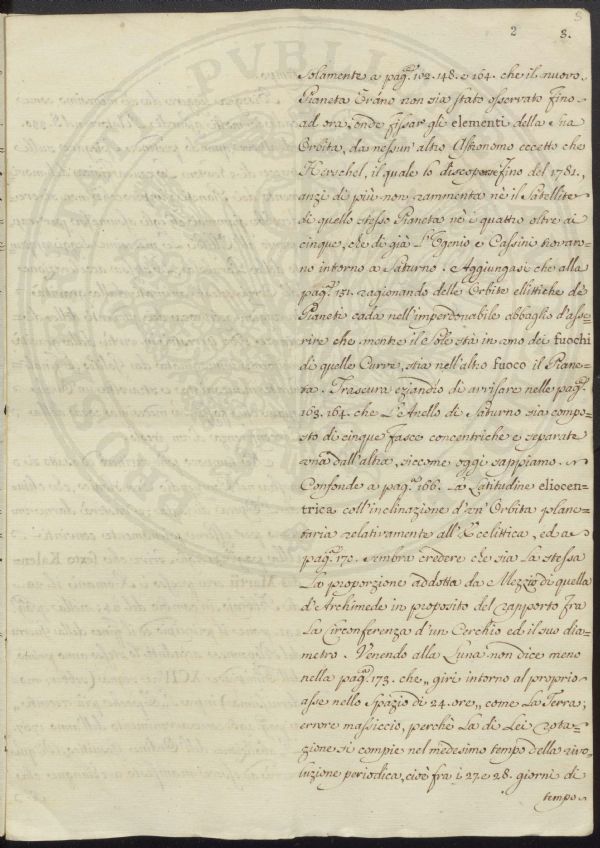 2 8.
solamente a pag.e 102. 148. e 164. che il nuovo
Pianeta Uráno non sia stato osservato fino
ad ora, onde fissar gli elementi della sua
Orbita, da nessun' altro Astronomo eccetto che
Herschel, il quale lo discoperse fino del 1781.,
anzi di più non rammenta nè il Satellite
di quello stesso Pianeta nè i quattro oltre ai
cinque, che di già l'Ugenio e Cassini trovaro=
no intorno a Saturno. Aggiungasi che alla
pag.e 151. ragionando delle Orbite ellittiche de'
Pianeti cada nell'imperdonabile abbaglio d'asse=
rire che mentre il Sole stà in uno dei fuochi
di quelle Curve, stia nell'altro fuoco il Piane=
ta. Trascura eziandio di avvisare nelle pag.e
163. 164. che L'Anello di Saturno sia compo=
sto di cinque fasce concentriche e separate
una dall'altra, siccome oggi sappiamo.
Confonde a pag.e 166. La Latitudine eliocen=
trica coll'inclinazione d'un' Orbita plane=
taria relativamente all'Ecclittica, ed a
pag.e 170. sembra credere che sia La stessa
La proporzione addotta da Mezzio di quella
d'Archimede in proposito del rapporto fra
La Circonferenza d'un Cerchio ed il suo dia=
metro. Venendo alla Luna non dice meno
nella pag.e 173. che „ giri intorno al proprio
asse nello spazio di 24. ore „ come La Terra;
errore massiccio, perchè La di Lei rota=
zione si compie nel medesimo tempo della rivo=
luzione periodica, cioè fra i 27. e 28. giorni di
tempo